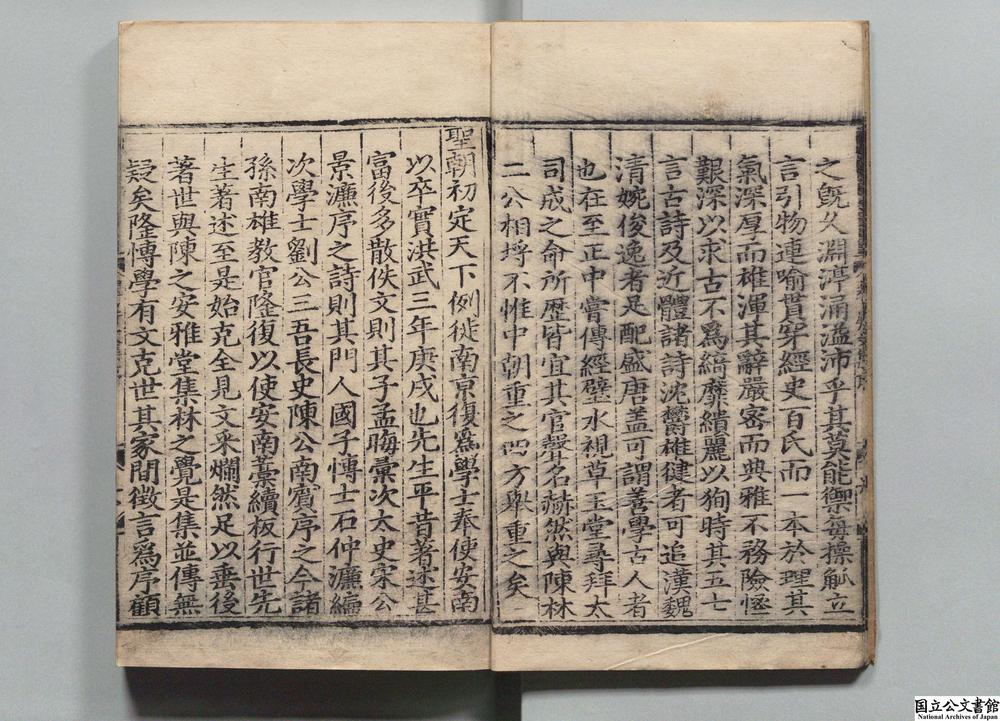 之既久淵渟涌溢沛乎其莫能禦每操觚立
言引物連喻貫穿經史百氏而一本於理其
氣深厚而雄渾其辭嚴密而典雅不務險怪
艱深以求古不爲綺靡繢麗以狥時其五七
言古詩及近體諸詩沈欝雄健者可追漢魏
清婉俊逸者足配盛唐盖可謂善學古人者
也在至正中嘗傳經壁水視草玉堂尋拜太
司成之命所歷皆宜其官聲名赫然與陳林
二公相埒不惟中朝重之四方舉重之矣
聖朝初定天下例徙南京復爲學士奉使安南
以卒實洪武三年庚戌也先生平昔著述甚
富後多散佚文則其子孟晦彙次太史宋公
景濂序之詩則其門人國子博士石仲濂編
次學士劉公三吾長史陳公南賔序之今諸
孫南雄教官隆復以使安南藁續板行世先
生著述至是始克全見文采爛然足以垂後
著世與陳之安雅堂集林之覺是集並傳無
疑矣隆博學有文克世其家間徵言爲序顧
国立公文書館
National Archives of Japan